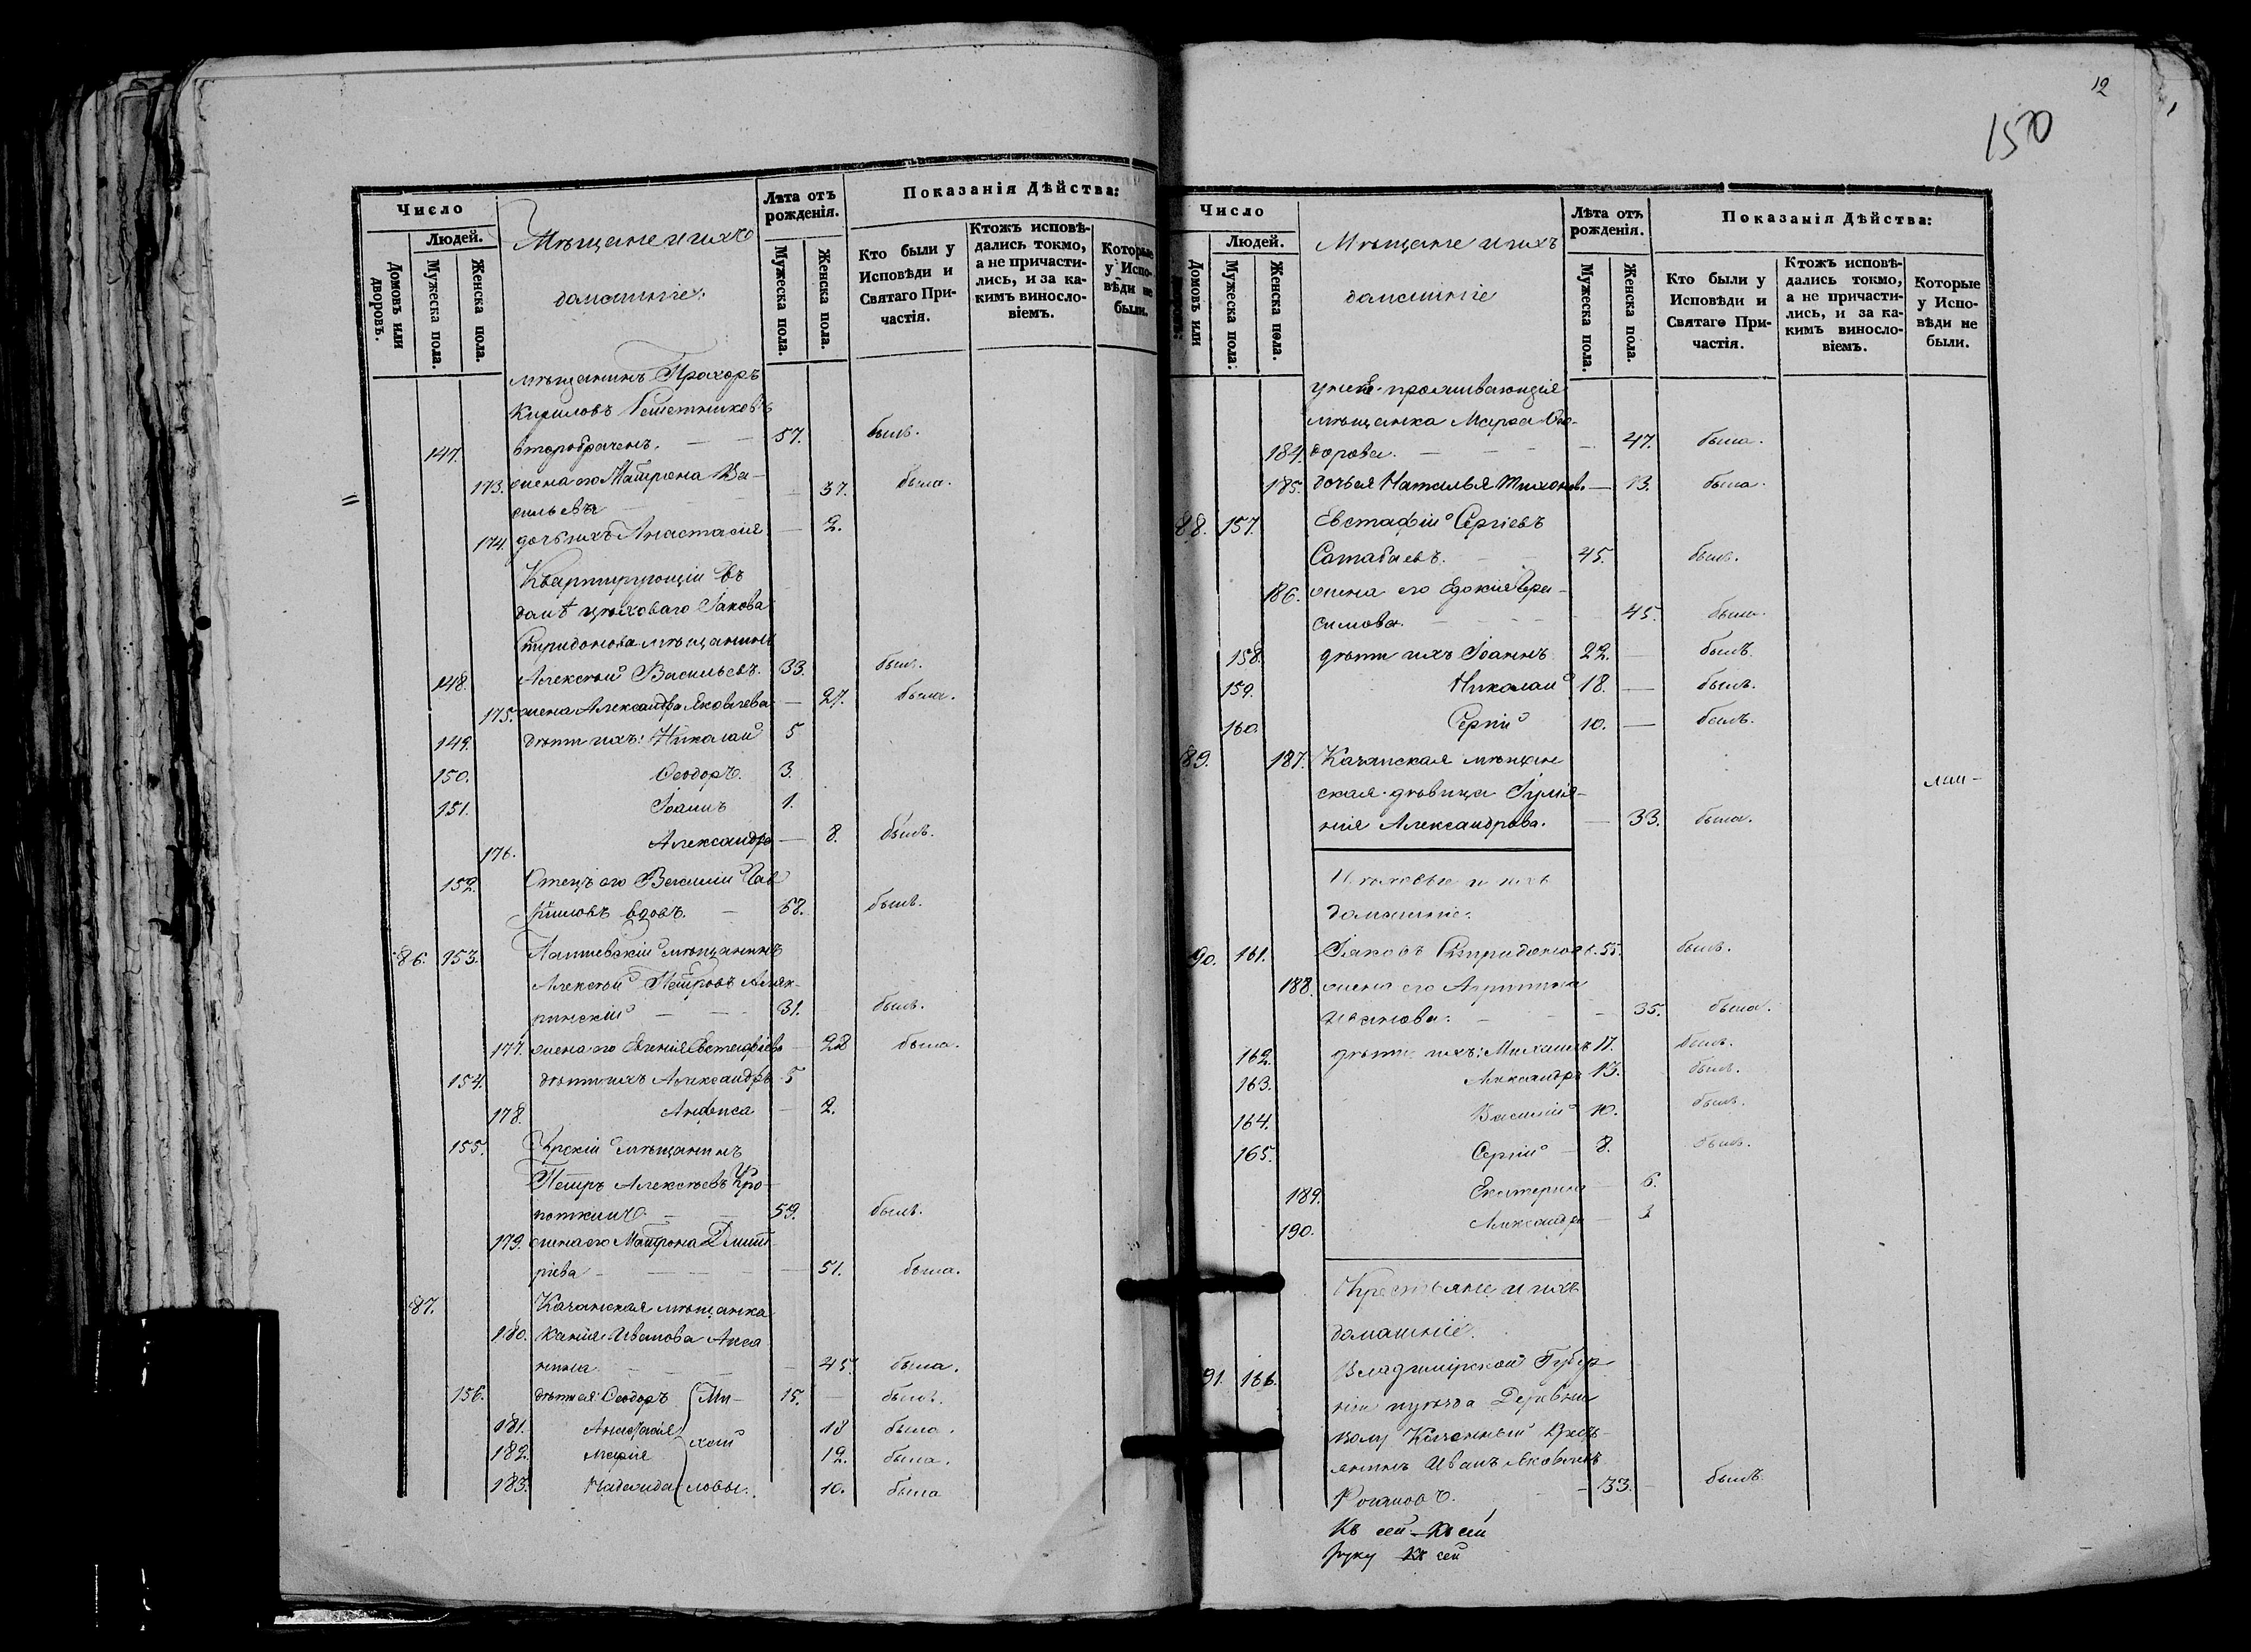 Число
Людей.
Домовъ или дворовъ.
Мужеска пола.
Женска пола.
Мѣщане и ихъ
домашніе.
Лѣта отъ рожденія.
Мужеска пола.
Женска пола.
Показанія Дѣйства:
Кто были у Исповѣди и Святаго Причастія.
Ктожъ исповѣдались токмо, а не причастились, и за какимъ винословіемъ.
Которые у Исповѣди не были.
мѣщанинъ Прохоръ
Кириловъ Решетниковъ
147. второбраченъ. 57. былъ.
173. жена его Матрона Ва-
сильева 37. была.
174. дочь ихъ Анастасія 2.
Квартирующій въ
домѣ цѣховаго Іакова
Спиридонова мѣщанинъ
148. Алексѣй Васильевъ. 33. былъ.
175. жена Александра Яковлева 27. была.
149. дѣти ихъ: Николай 5
150. Ѳеодоръ. 3.
151. Іоаннъ 1.
176. Александра 8. былъ.
152. Отецъ его Василій Гав
риловъ вдовъ. 68. былъ.
86. 153. мѣщанинъ
Алексѣй Петровъ
31. былъ.
177. жена его Евгенія Евстафіева 28 была.
154. дѣти ихъ Александръ 5
178. Анфиса 2.
155. мѣщанинъ
Петръ Алексѣевъ Кро-
поткинъ 59. былъ.
179. жена его Матрона Дмит-
ріева 51. была.
87. Казанская мѣщанка
180. Иванова
45. была.
156. дѣти ея: Ѳеодоръ Ми- 15. былъ.
181. Анастасія хай 18 была.
182. Марія 12. была.
183. Надежда ловы. 10. была
12
150
Число
Людей.
Домовъ или
Мужеска пола.
Женска пола.
Мѣщане и ихъ
домашніе
Лѣта отъ рожденія.
Мужеска пола.
Женска пола.
Показанія Дѣйства:
Кто были у Исповѣди и Святаго Причастія.
Ктожъ исповѣдались токмо, а не причастились, и за какимъ винословіемъ.
Которые у Исповѣди не были.
у нея проживающія
мѣщанка Марѳа Ѳео-
184. дорова. 47. была.
185. дочь ея Наталья Тихонов. 13. была.
88. 157. Евстафій Сергіевъ
Сатабаевъ. 45. былъ.
186. жена его Евдокія Гера-
симова. 45. была.
158. дѣти ихъ Іоаннъ 22. былъ
159. Николай 18. былъ.
160. Сергій 10. былъ.
89. 187. Казанская мѣщан
ская дѣвица Іуліа-
нія Александрова. 33. была.
Цѣховые и ихъ
домашніе.
90. 161. Іаковъ Спиридонов. 55. былъ.
188. жена его Агрипина
Иванова. 35. была.
162. дѣти ихъ: Михаилъ 17. былъ.
163. Александръ 13. былъ.
164. Василій 10. былъ.
165. Сергій 8. былъ.
189. Екатерина 6.
190. Александра 3
Крестьяне и ихъ
домашніе.
91. 166. Владимірской Губер-
ніи уѣзда Деревни
Казенный Крест-
янинъ Иванъ Яковлевъ
33. былъ
Къ сей Къ сей
руку Къ сей